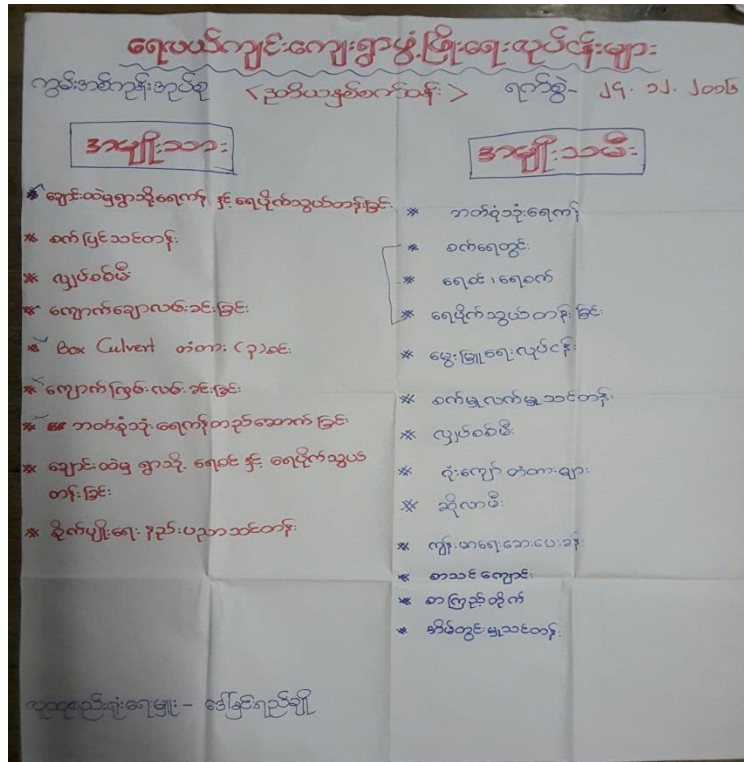 ရေပယ်ကျင်းကျေးရွာဖွံ့ဖြိုးရေးလုပ်ငန်းများ
ကွမ်းအစ်ကုန်းအုပ်စု <ဒုတိယနှစ်စက်ဝန်း> ရက်စွဲ- ၂၄.၁၂.၂၀၁၆
အမျိုးသား
* ချောင်းထဲမှရွာသို့ရေကန် နှင့် ရေပိုက်သွယ်တန်းခြင်း
* စက်ပြင်သင်တန်း
* လျှပ်စစ်မီး
* ကျောက်ချောလမ်းခင်းခြင်း
* Box Culvert တံတား (၃) စင်း
* ကျောက်ကြမ်းလမ်းခင်းခြင်း
* ဘတ်စုံသုံးရေကန်တည်ဆောက်ခြင်း
* ချောင်းထဲမှ ရွာသို့ ရေစင် နှင့် ရေပိုက်သွယ်
တန်းခြင်း
* စိုက်ပျိုးရေး နည်းပညာသင်တန်း
အမျိုးသမီး
* ဘတ်စုံသုံးရေကန်
* စက်ရေတွင်း
* ရေစင် ၊ ရေစက်
* ရေပိုက်သွယ်တန်းခြင်း
* မွေးမြူရေးလုပ်ငန်း
* စက်မှုလက်မှုသင်တန်း
* လျှပ်စစ်မီး
* ဝုံးကျော် တံတားများ
* ဆိုလာမီး
* ကျန်းမာရေးဆေးပေးခန်း
* စာသင်ကျောင်း
* စာကြည့်တိုက်
* အိမ်တွင်းမှုသင်တန်း
လူထုစည်းရုံးရေးမှူး - ဒေါ်ခြင်္ရည်ချို